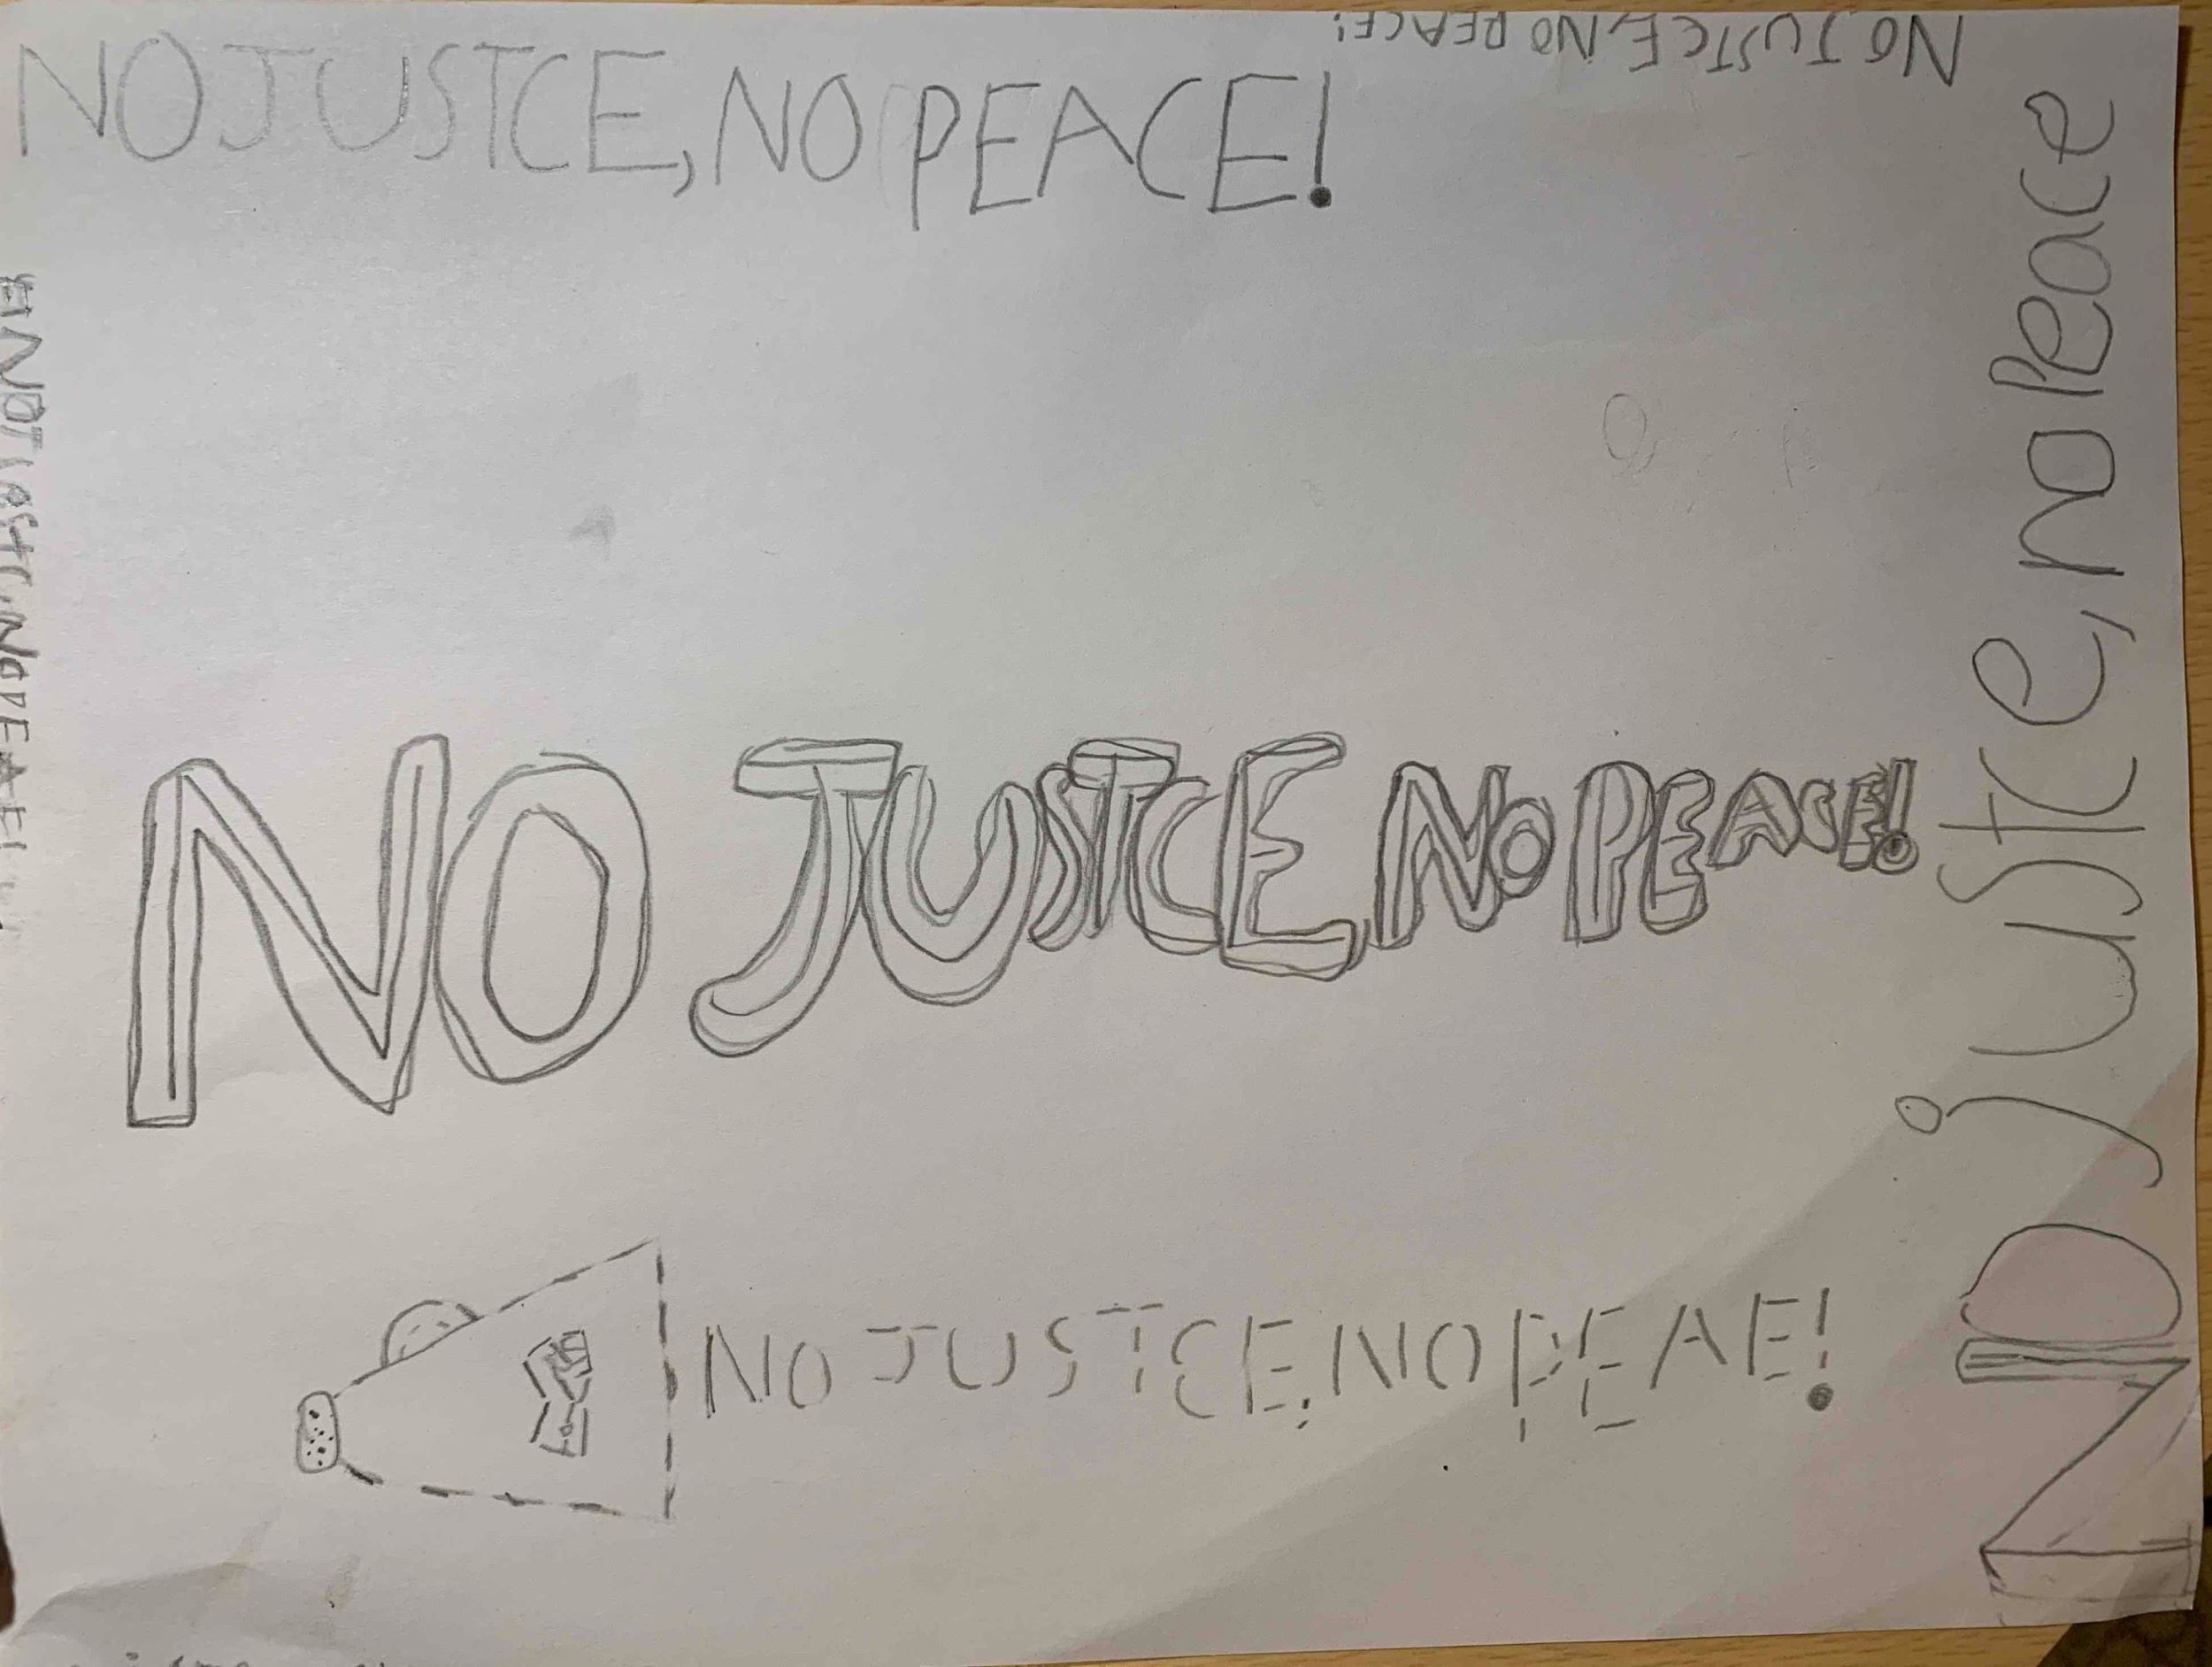 NO JUSTCE, NO PEACE!
NO JUSTCE, NO PEACE!
NO JUSTCE, NO PEACE!
NO JUSTCE, NO PEAE!
NO justce, no peace